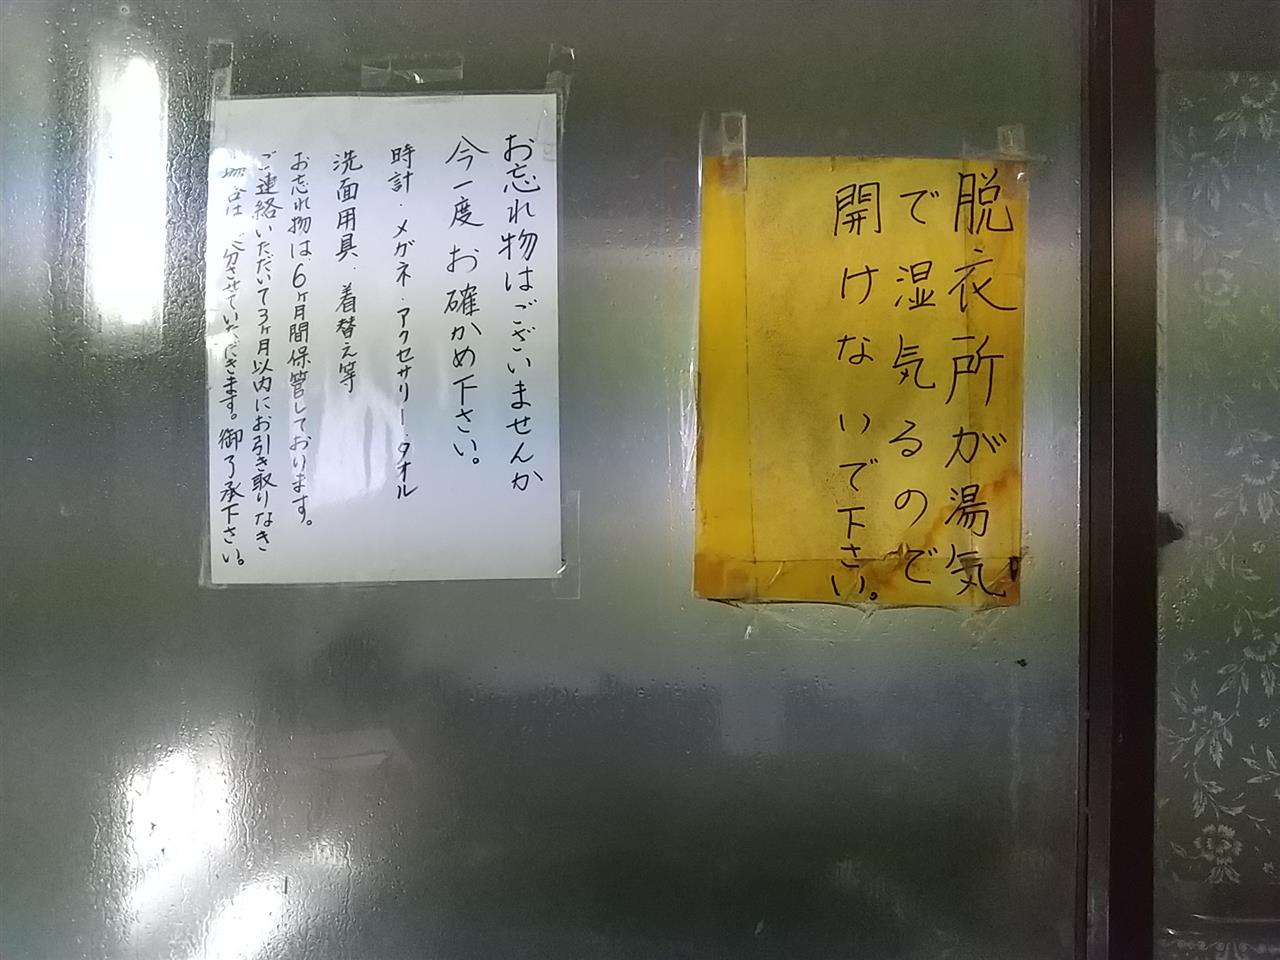 脱衣所が湯気
で湿気るので
開けないで下さい。
お忘れ物はございませんか
今一度お確かめ下さい。
時計・メガネ・アクセサリー・タオル
洗面用具・着替え等
お忘れ物は6ヶ月間保管しております。
ご連絡いただいて3ヶ月以内にお引き取りなき
場合は 分させていただきます。御了承下さい。